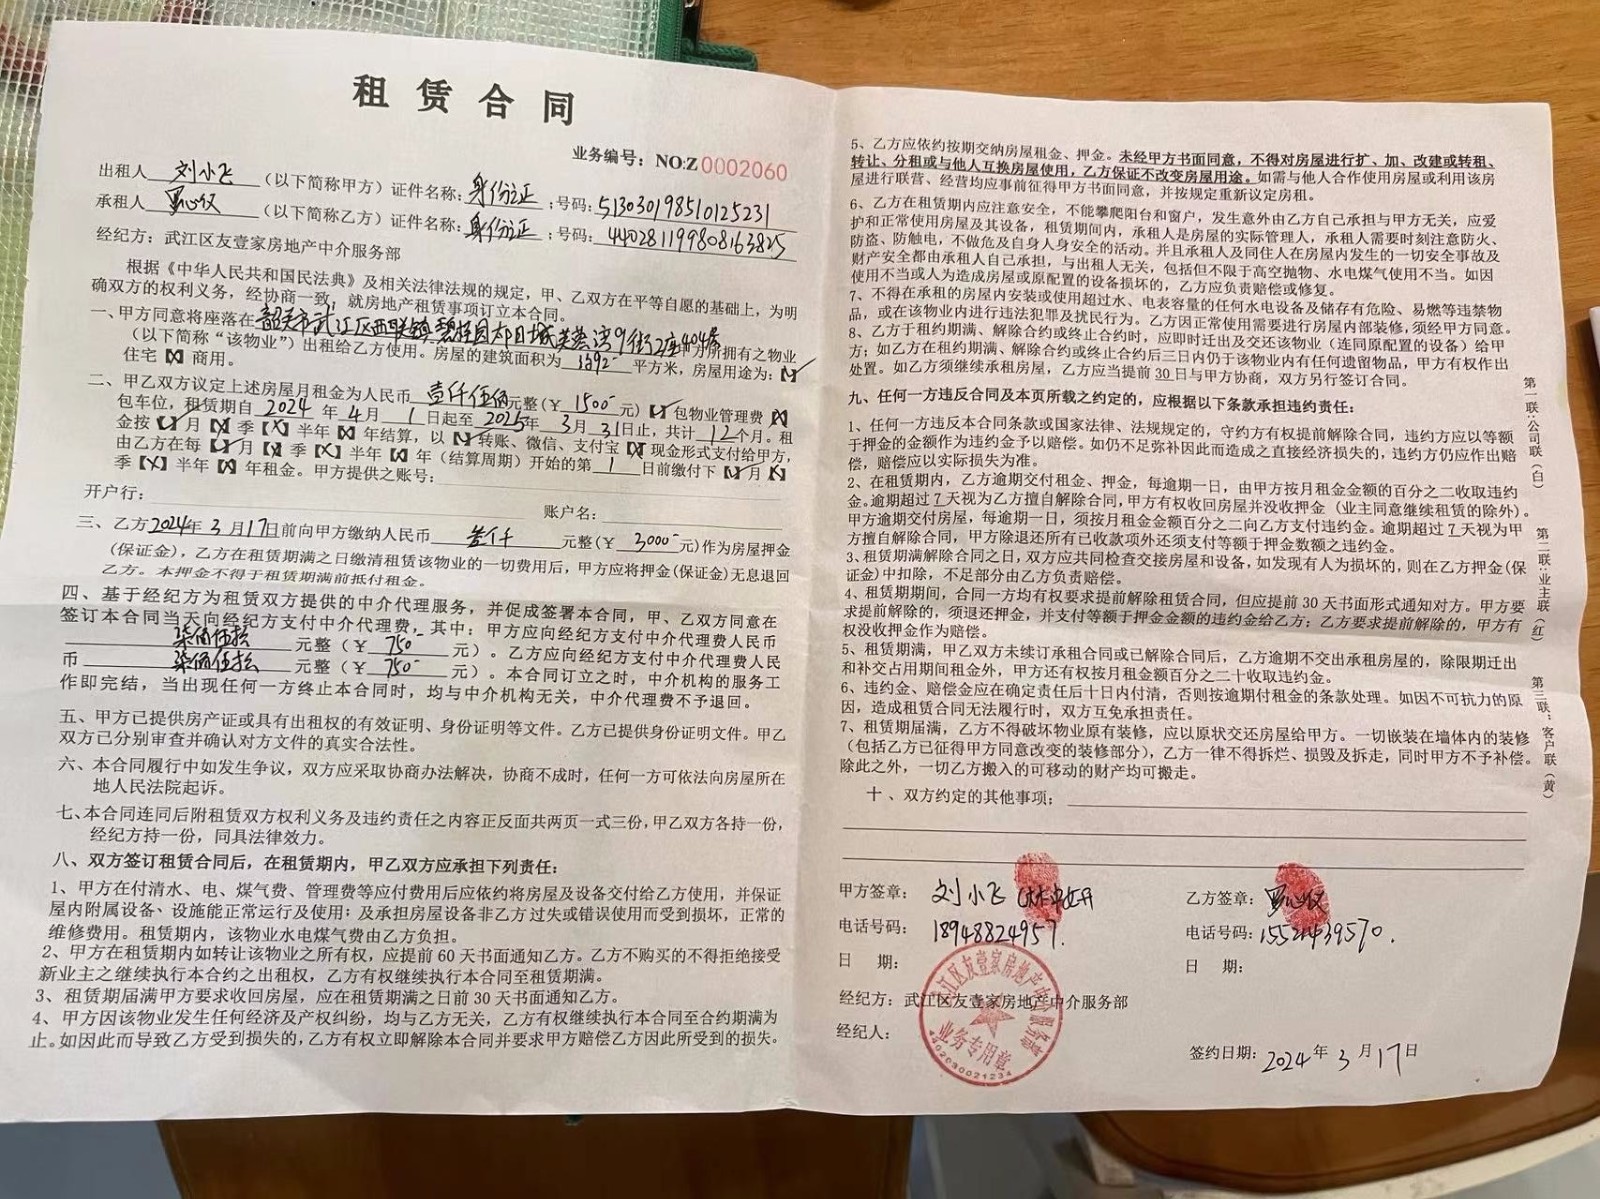 租赁合同
业务编号：NO:Z0002060
出租人 刘小飞 （以下简称甲方）证件名称：身份证 ；号码：513030198510125231
承租人 罗心纹 （以下简称乙方）证件名称：身份证 ；号码：440281199808163825
经纪方：武江区友壹家房地产中介服务部
根据《中华人民共和国民法典》及相关法律法规的规定，甲、乙双方在平等自愿的基础上，为明
确双方的权利义务，经协商一致，就房地产租赁事项订立本合同。
一、甲方同意将座落在 韶关市武江区西联镇碧桂园太阳城芙蓉湾9街2座404房 所拥有之物业
（以下简称“该物业”）出租给乙方使用。房屋的建筑面积为 平方米，房屋用途为：【✓】
住宅【X】商用。
二、甲乙双方议定上述房屋月租金为人民币 壹仟伍佰 元整（¥ 1500 元）【✓】包物业管理费【X】
包车位，租赁期自 2024 年 4 月 1 日起至 2025 年 3 月 31 日止，共计 12 个月。租
金按【✓】月【X】季【X】半年【X】年结算，以【✓】转账、微信、支付宝【X】现金形式支付给甲方，
由乙方在每【✓】月【X】季【X】半年【X】年（结算周期）开始的第 1 日前缴付下【✓】月【X】
季【X】半年【X】年租金。甲方提供之账号：
开户行： 账户名：
三、乙方 2024年3月17日前向甲方缴纳人民币 叁仟 元整（¥ 3000 元）作为房屋押金
（保证金），乙方在租赁期满之日缴清租赁该物业的一切费用后，甲方应将押金（保证金）无息退回
乙方。本押金不得于租赁期满前抵付租金。
四、基于经纪方为租赁双方提供的中介代理服务，并促成签署本合同，甲、乙双方同意在
签订本合同当天向经纪方支付中介代理费，其中：甲方应向经纪方支付中介代理费人民币
柒佰伍拾 元整（¥ 750 元）。乙方应向经纪方支付中介代理费人民
币 柒佰伍拾 元整（¥ 750 元）。本合同订立之时，中介机构的服务工
作即完结，当出现任何一方终止本合同时，均与中介机构无关，中介代理费不予退回。
五、甲方已提供房产证或具有出租权的有效证明、身份证明等文件。乙方已提供身份证明文件。甲乙
双方已分别审查并确认对方文件的真实合法性。
六、本合同履行中如发生争议，双方应采取协商办法解决，协商不成时，任何一方可依法向房屋所在
地人民法院起诉。
七、本合同连同后附租赁双方权利义务及违约责任之内容正反面共两页一式三份，甲乙双方各持一份，
经纪方持一份，同具法律效力。
八、双方签订租赁合同后，在租赁期内，甲乙双方应承担下列责任：
1、甲方在付清水、电、煤气费、管理费等应付费用后应依约将房屋及设备交付给乙方使用，并保证
屋内附属设备、设施能正常运行及使用；及承担房屋设备非乙方过失或错误使用而受到损坏，正常的
维修费用。租赁期内，该物业水电煤气费由乙方负担。
2、甲方在租赁期内如转让该物业之所有权，应提前60天书面通知乙方。乙方不购买的不得拒绝接受
新业主之继续执行本合约之出租权，乙方有权继续执行本合同至租赁期满。
3、租赁期届满甲方要求收回房屋，应在租赁期满之日前30天书面通知乙方。
4、甲方因该物业发生任何经济及产权纠纷，均与乙方无关，乙方有权继续执行本合同至合约期满为
止。如因此而导致乙方受到损失的，乙方有权立即解除本合同并要求甲方赔偿乙方因此所受到的损失。
5、乙方应依约按期交纳房屋租金、押金。未经甲方书面同意，不得对房屋进行扩、加、改建或转租、
转让、分租或与他人互换房屋使用，乙方保证不改变房屋用途。如需与他人合作使用房屋或利用该房
屋进行联营、经营均应事前征得甲方书面同意，并按规定重新议定房租。
6、乙方在租赁期内应注意安全，不能攀爬阳台和窗户，发生意外由乙方自己承担与甲方无关，应爱
护和正常使用房屋及其设备，租赁期间内，承租人是房屋的实际管理人，承租人需要时刻注意防火、
防盗、防触电，不做危及自身人身安全的活动。并且承租人及同住人在房屋内发生的一切安全事故及
财产安全都由承租人自己承担，与出租人无关，包括但不限于高空抛物、水电煤气使用不当。如因
使用不当或人为造成房屋或原配置的设备损坏的，乙方应负责赔偿或修复。
7、不得在承租的房屋内安装或使用超过水、电表容量的任何水电设备及储存有危险、易燃等违禁物
品，或在该物业内进行违法犯罪及扰民行为。乙方因正常使用需要进行房屋内部装修，须经甲方同意。
8、乙方于租约期满、解除合约或终止合约时，应即时迁出及交还该物业（连同原配置的设备）给甲
方；如乙方在租约期满、解除合约或终止合约后三日内仍于该物业内有任何遗留物品，甲方有权作出
处置。如乙方须继续承租房屋，乙方应当提前30日与甲方协商，双方另行签订合同。
九、任何一方违反合同及本页所载之约定的，应根据以下条款承担违约责任：
1、任何一方违反本合同条款或国家法律、法规规定的，守约方有权提前解除合同，违约方应以等额
于押金的金额作为违约金予以赔偿。如仍不足弥补因此而造成之直接经济损失的，违约方仍应作出赔
偿，赔偿应以实际损失为准。
2、在租赁期内，乙方逾期交付租金、押金，每逾期一日，由甲方按月租金金额的百分之二收取违约
金。逾期超过7天视为乙方擅自解除合同，甲方有权收回房屋并没收押金（业主同意继续租赁的除外）。
甲方逾期交付房屋，每逾期一日，须按月租金金额百分之二向乙方支付违约金。逾期超过7天视为甲
方擅自解除合同，甲方除退还所有已收款项外还须支付等额于押金数额之违约金。
3、租赁期满解除合同之日，双方应共同检查交接房屋和设备，如发现有人为损坏的，则在乙方押金（保
证金）中扣除，不足部分由乙方负责赔偿。
4、租赁期期间，合同一方均有权要求提前解除租赁合同，但应提前30天书面形式通知对方。甲方要
求提前解除的，须退还押金，并支付等额于押金金额的违约金给乙方；乙方要求提前解除的，甲方有
权没收押金作为赔偿。
5、租赁期满，甲乙双方未续订承租合同或已解除合同后，乙方逾期不交出承租房屋的，除限期迁出
和补交占用期间租金外，甲方还有权按月租金额百分之二十收取违约金。
6、违约金、赔偿金应在确定责任后十日内付清，否则按逾期付租金的条款处理。如因不可抗力的原
因，造成租赁合同无法履行时，双方互免承担责任。
7、租赁期届满，乙方不得破坏物业原有装修，应以原状交还房屋给甲方。一切嵌装在墙体内的装修
（包括乙方已征得甲方同意改变的装修部分），乙方一律不得拆烂、损毁及拆走，同时甲方不予补偿。
除此之外，一切乙方搬入的可移动的财产均可搬走。
十、双方约定的其他事项：
甲方签章： 刘小飞
乙方签章： 罗心纹
电话号码：18948824957.
电话号码：15521439570.
日 期：
日 期：
经纪方：武江区友壹家房地产中介服务部
经纪人：
签约日期：2024年3月17日
武江区友壹家房地产中介服务部
业务专用章
4402030021234
第一联：公司联（白）
第二联：业主联（红）
第三联：客户联（黄）